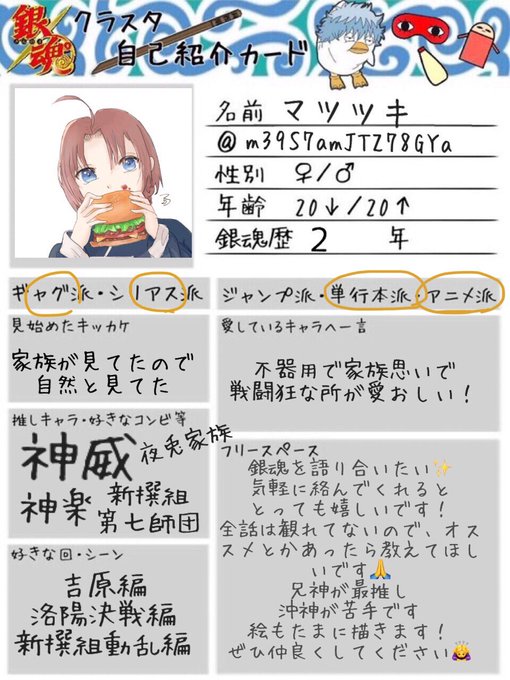 銀魂
クラスタ
自己紹介カード
名前 マツツキ
@m39S7amJTZ78GYa
性別 ♀/♂
年齢 20↓/20↑
銀魂歴 2 年
ギャグ派・シリアス派
ジャンプ派・単行本派・アニメ派
見始めたキッカケ
家族が見てたので
自然と見てた
愛しているキャラへ一言
不器用で家族思いで
戦闘狂な所が愛おしい!
推しキャラ・好きなコンビ等
神威 夜兎家族
神楽 新撰組
第七師団
好きな回・シーン
吉原編
洛陽決戦編
新撰組動乱編
フリースペース
銀魂を語り合いたい✨
気軽に絡んでくれると
とっても嬉しいです!
全話は観れてないので、オス
スメとかあったら教えてほし
いです🙏
兄神が最推し
沖神が苦手です
絵もたまに描きます!
ぜひ仲良くしてください🙇‍♀️